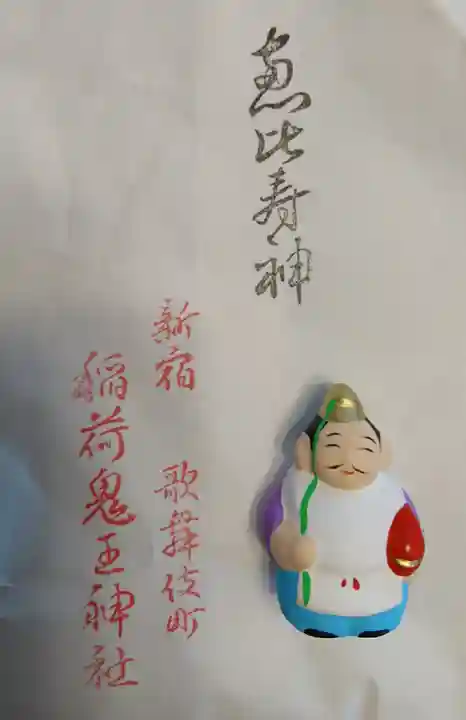 恵比寿神
新宿 歌舞伎町
稲荷鬼王神社